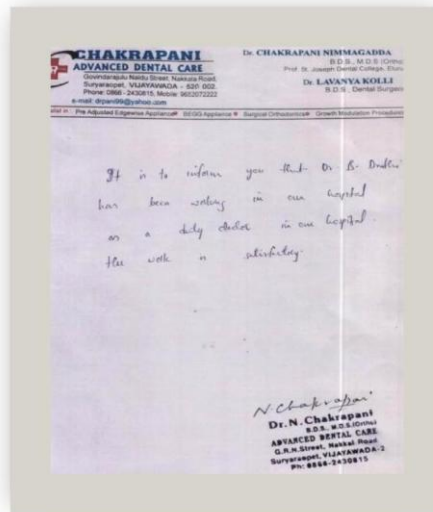 CHAKRAPANI
ADVANCED DENTAL CARE
Govindarajulu Naidu Street, Nakkala Road,
Suryaraopet, VIJAYAWADA - 520 002.
Phone: 0866 - 2430815, Mobile: 9652072222
e-mail: drpani99@yahoo.com
Dr. CHAKRAPANI NIMMAGADDA
B.D.S., M.D.S (Ortho)
Prof. St. Joseph Dental College, Eluru
Dr. LAVANYA KOLLI
B.D.S., Dental Surgeon
Pre Adjusted Edgewise Appliance BEGG Appliance Surgical Orthodontics Growth Modulation Procedures
It is to inform you that Dr B.
has been working in our hospital
as a duty doctor in our hospital.
His work is satisfactory.
N. Chakrapani
Dr. N. Chakrapani
B.D.S., M.D.S.(Ortho)
ADVANCED DENTAL CARE
G.R.N.Street, Nakkal Road
Suryaraopet, VIJAYAWADA-2
Ph: 0866-2430815